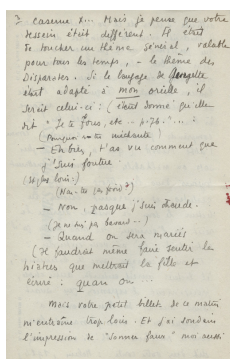 caserne x... Mais je pense que votre
dessein était différent. Il était
de toucher un thème général, valable
pour tous les temps, - le thème des
Disparates. Si le langage de
était adapté à mon oreille, il
serait celui-ci : (étant donné qu'elle
dit "Je te , etc.. p. 76. "... :
(Pourquoi es-tu méchante)
- Eh bien, t'as vu comment que
j'suis foutue.
(Et plus loin :)
(Non- tu )
- Non, pasque j'suis chaude.
(Je ne suis pas bavard...)
- Quand on sera mariés
(Il faudrait même faire sentir la
que mettrait la fille et
écrire : quan on ...
Mais votre petit billet de ce matin
m'entraîne trop loin. Et j'ai soudain
l'impression de "donner faux" moi aussi